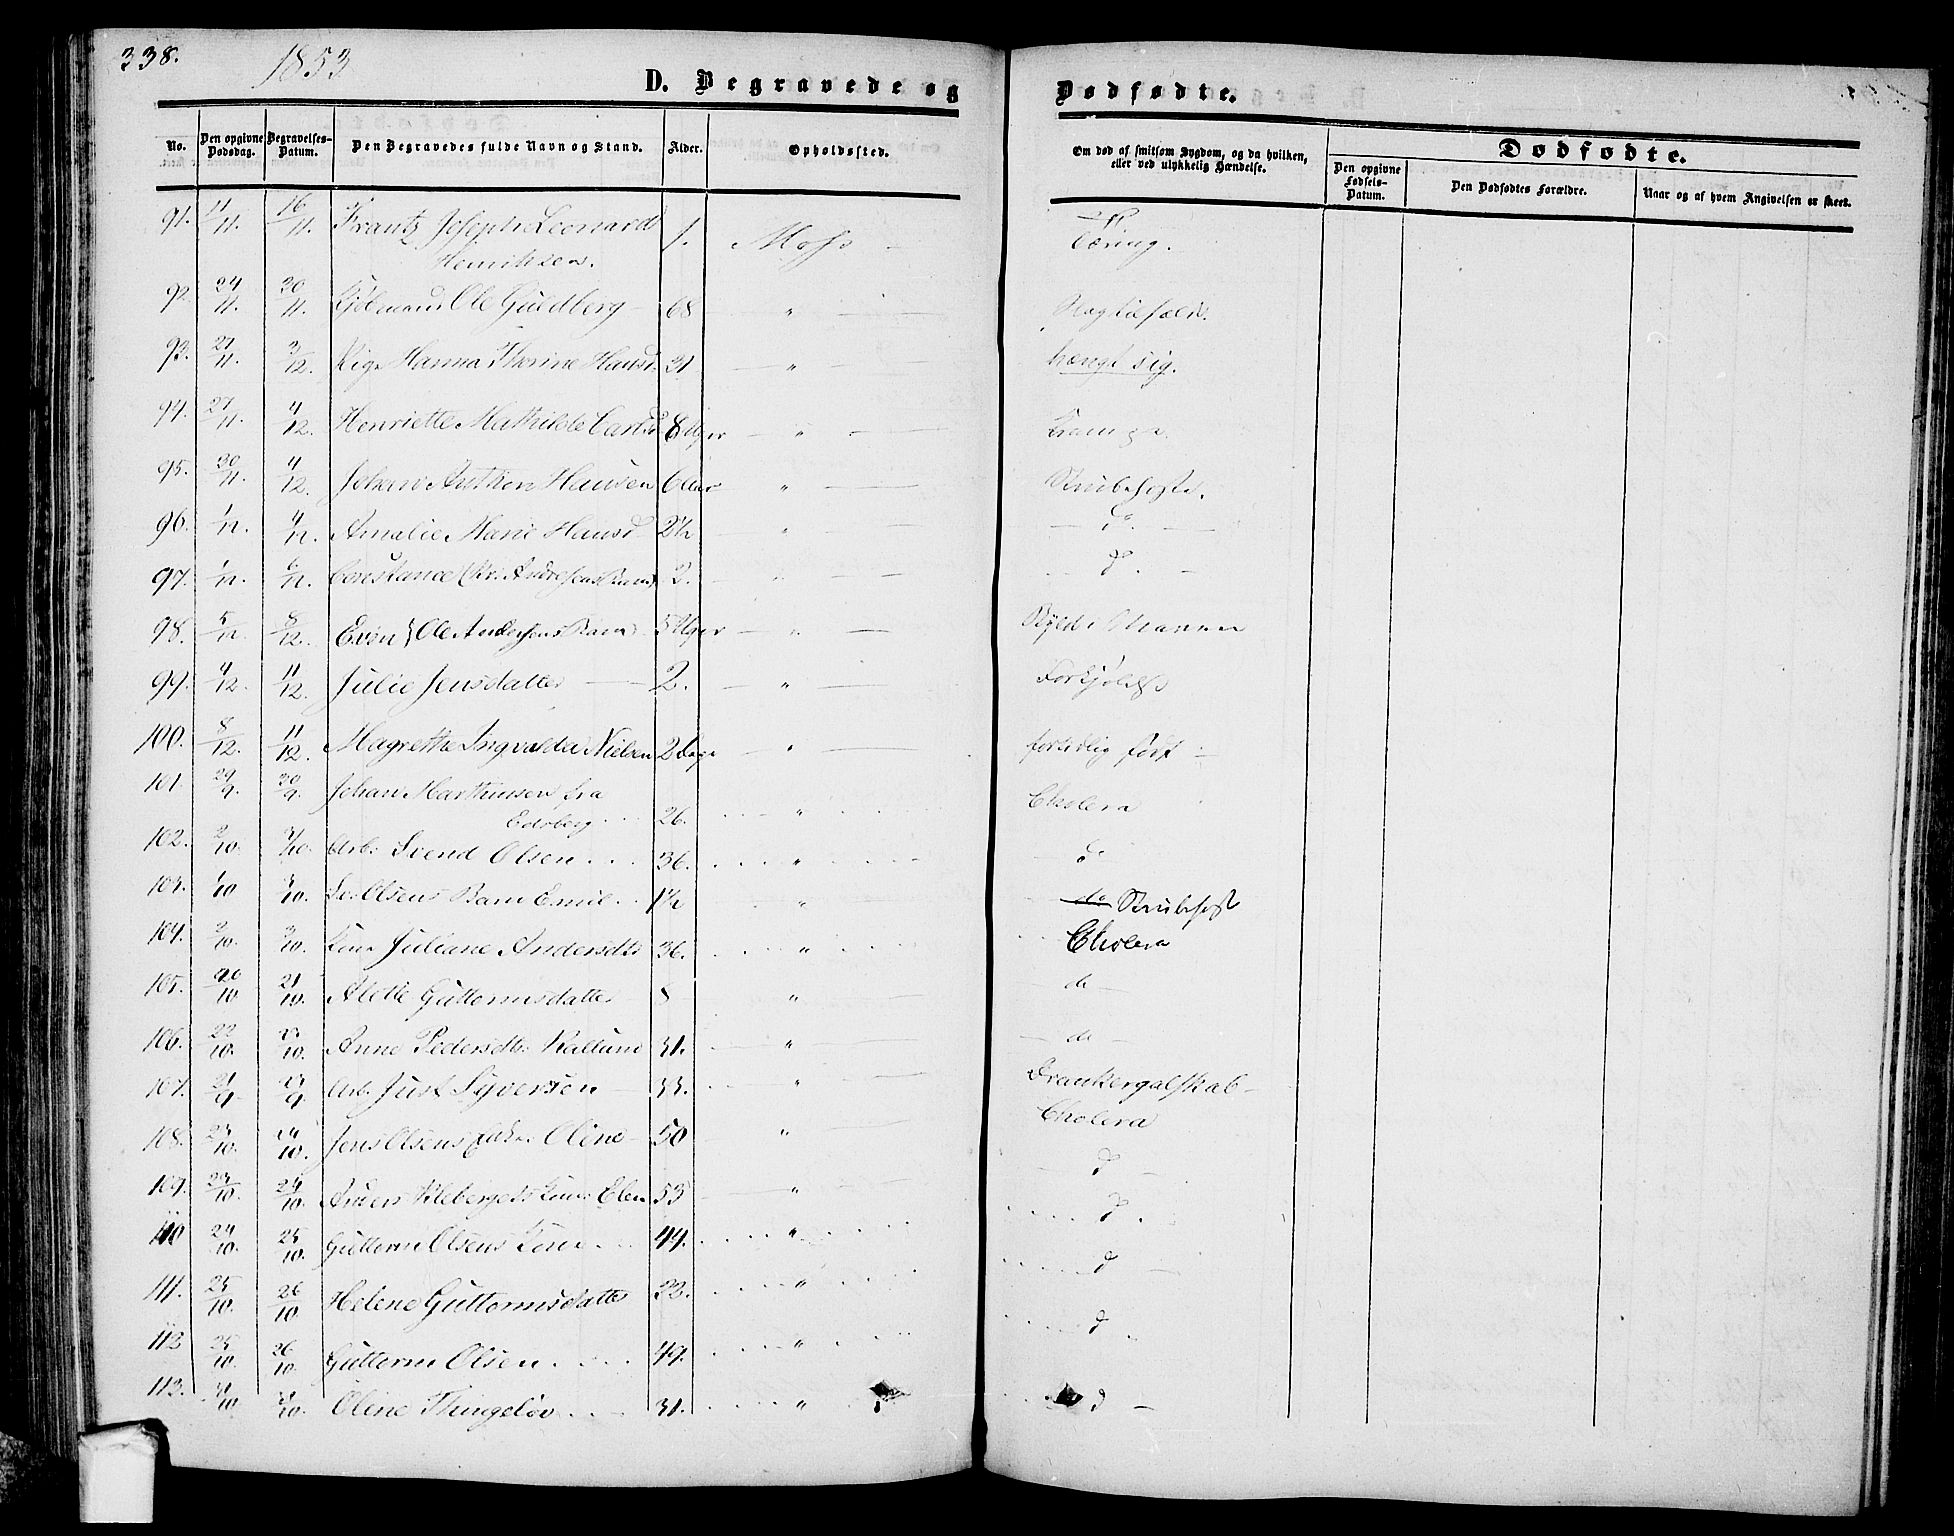 338.
1853
D. Begravede og
Dødfødte.
No. Den opgivne Dødsdag. Begravelses-Datum. Den Begravedes fulde Navn og Stand. Alder. Opholdssted. Om død af smitsom Sygdom, og da hvilken, eller ved ulykkelig Hændelse.
Dødfødte.
Den opgivne Fødsels-Datum. Den Dødfødtes Forældre. Naar og af hvem Angivelsen er skeet.
91. 11/11. 16/11. Frantz Joseph Leonard 1. Moss — Tæring.
Henriksen.
92. 24/11. 30/11. Ole Guldberg — 68 — " —
93. 27/11. 3/12. Pige Hanna Thorine Hansd. 31. — " — hængt sig.
94. 27/11. 4/12. Henriette Mathilde Carlsd 8 Uger — " — Krampe.
95. 30/11. 4/12. Johan Anthon Hansen 6 Aar " — Strubehoste.
96. 1/12. 4/12. Amalie Marie Hansd 2½ — " — — do. —
97. 1/12. 6/12. Constance (Chr. Andresens Barn) 2. — " — — do. —
98. 5/12. 8/12. Even (Ole Andersens Barn) 5 Uger — " —
99. 4/12. 11/12. Julie Jensdatter — 2. — " — Forkjølelse
100. 8/12. 11/12. Magrethe Ingvalda Nielsen 2 Dage — " — fortidlig født —
101. 29/9. 30/9. Johan Marthinsen fra
Edsberg. 26. " Cholera
102. 2/10. 3/10. Arb. Svend Olsen 36. " do
103. 1/10 3/10. Olsens Barn Emil. 1½ " do Strubehost
104. 2/10. 3/10. Kone Juliane Andersdtr 36. " Cholera
105. 20/10 21/10. Alette Guttormsdatter 8 " do —
106. 22/10. 23/10. Anne Pedersdtr. Kallund 31. " — do —
107. 21/9. 23/9. Arb. Just Syversen — 33. " Drankergalskab —
108. 23/10. 24/10. Jens Olsens Enke Oline — 50 " Cholera
109. 23/10. 24/10. Anders Klebergets Kone Elen 53 — " — — do —
110 24/10. 25/10. Guttorm Olsens Kone 44. " do.
111. 25/10. 26/10 Helene Guttormsdatter 22. " do —
112 25/10. 26/10. Guttorm Olsen. 49. " do
113. 31/10. 31/10. Oline Thingeløv 31. " do —